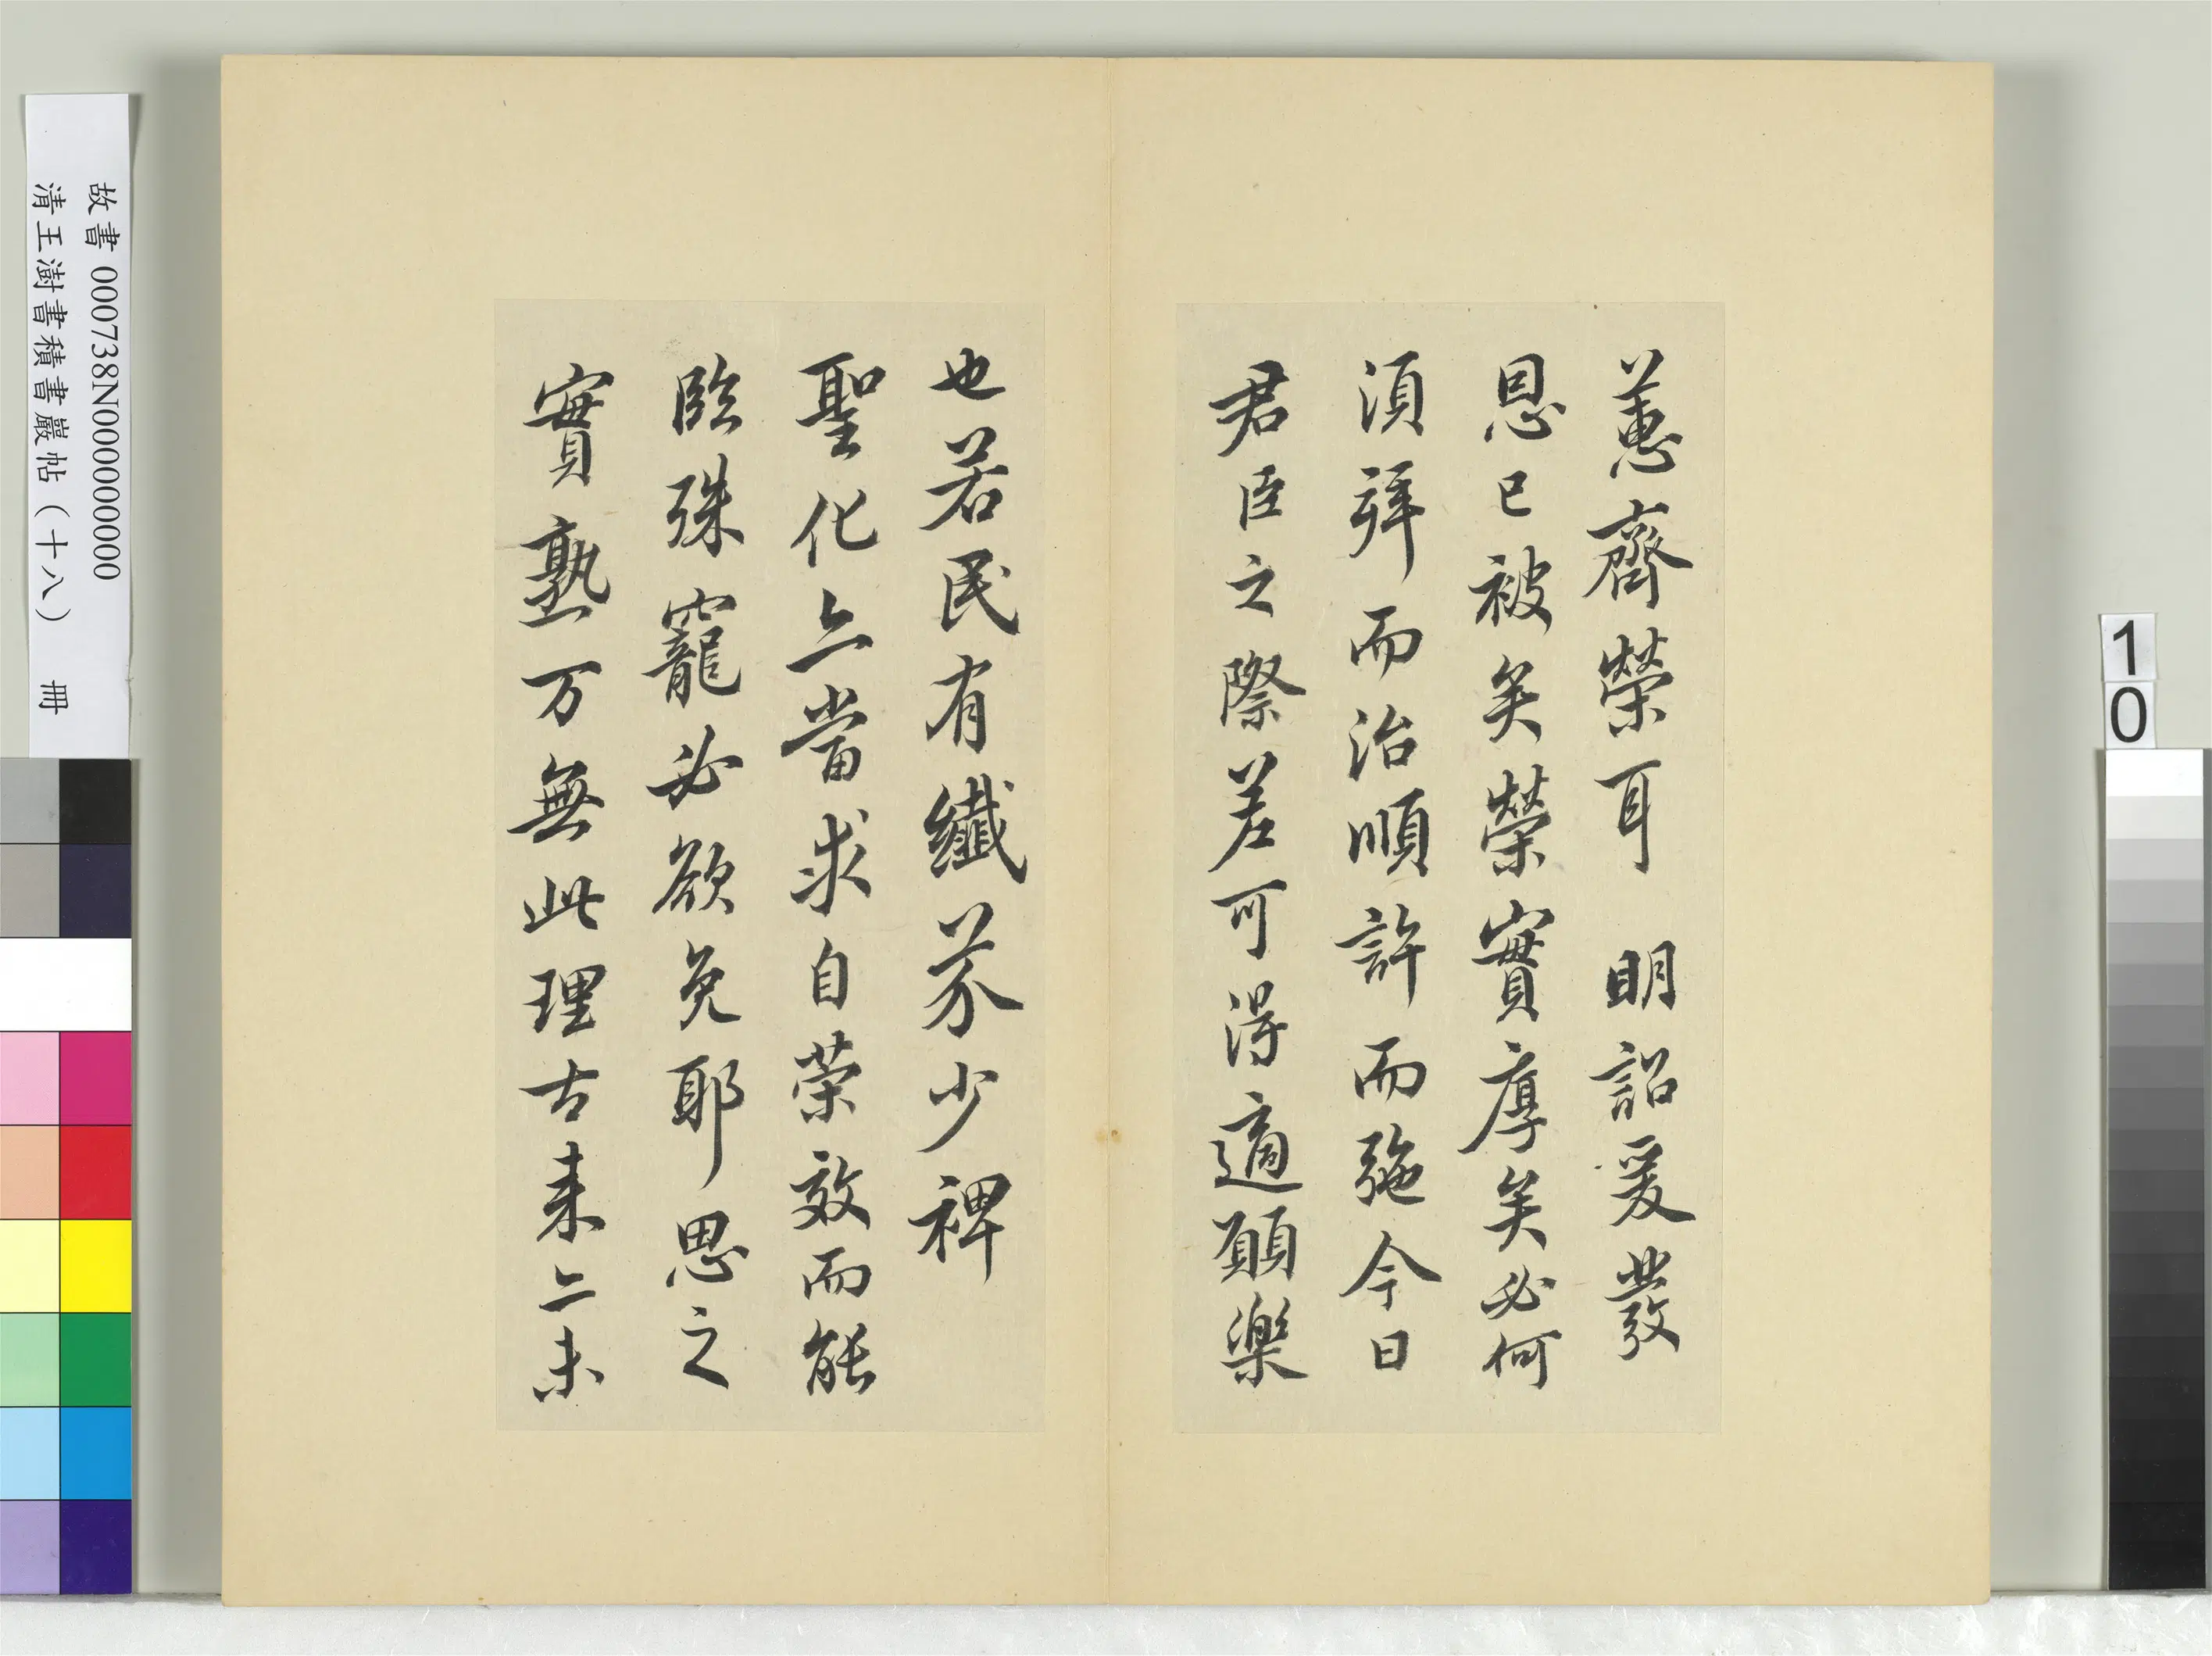 蕙齊榮耳　明詔爰發
恩已被矣榮實厚矣必何
須拜而治順許而施今日
君臣之際差可得適願樂
也若民有纖芥少裨
聖化亦當求自荣效而能
臨殊寵必欲免耶思之
實熟万無此理古来亦未
故書 000738N000000000
清王澍書積書巖帖（十八） 冊
10